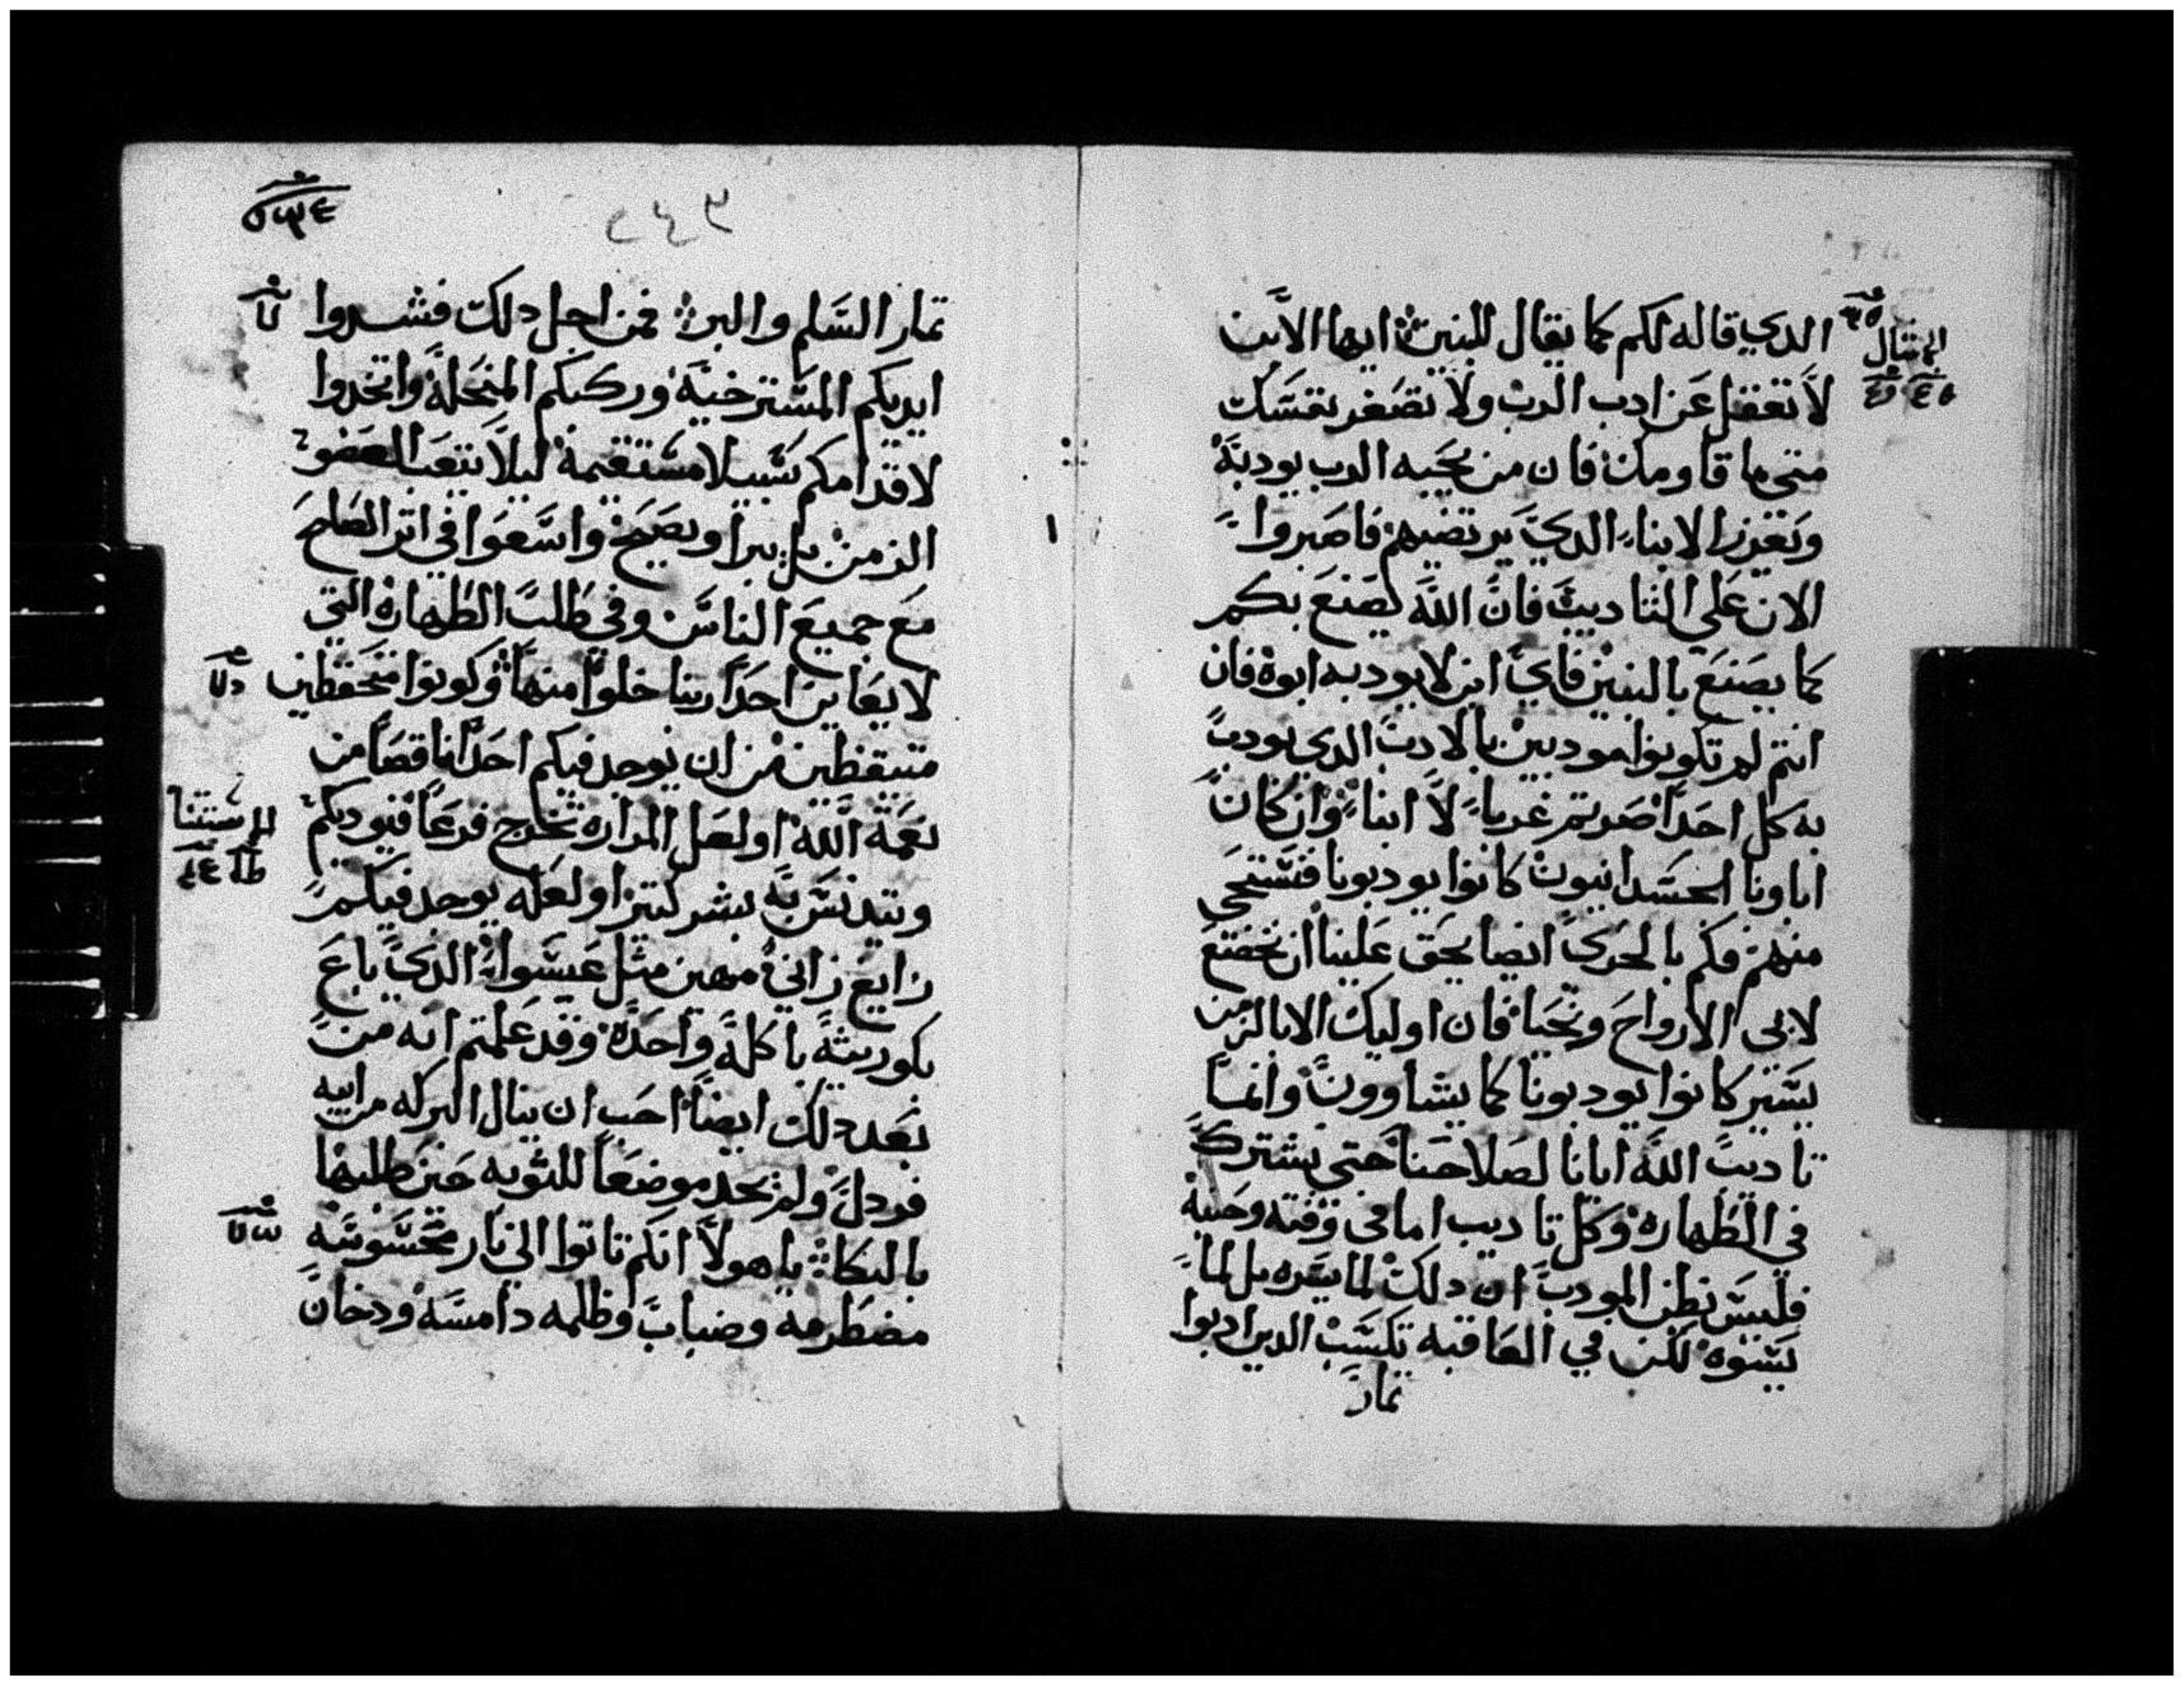 الدي قاله لكم كما يقال للبنين ايها الابن
الامثال
لا تغفل عن ادب الرب ولا تصغر نفسك
متى ما قاومك فان من يحبه الرب يودبه
ويعزز الابناء الدي يرتضيهم فاصبروا
الان على التاديب فان الله يصنع بكم
كما يصنع بالبنين فاي ابن لا يودبه ابوه فان
انتم لم تكونوا مودبين بالادب الدي يودب
به كل احد اصرتم غربا لا ابنا وان كان
اباونا الجسدانيون كانوا يودبونا فنستحي
منهم فكم بالحري ايضا يحق علينا ان نخضع
لابي الارواح ونحيا فان اوليك الابا لزمن
يسير كانوا يودبونا كما يشاوون وانما
تاديب الله ايانا لصلاحنا حتى نشترك
في الطهاره وكل تاديب اما في وقته وحينه
فليس نظن المودب ان دلك لما يسره بل لما
يسوه لكن في العاقبه تكسب الدين ادبوا
تمار
٢٤٣
تمار السلم والبر فمن اجل دلك فشدوا
ايديكم المسترخيه وركبكم المنحله واتخدوا
لاقدامكم سبيلا مستقيمه ليلا يتعب العضو
الزمن بل يبرا ويصح واسعوا في اتر الصلح
مع جميع الناس وفي طلب الطهاره التي
لا يعاين احد ربنا خلوا منها وكونوا متحفظين
متيقظين من ان يوجد فيكم احد ناقصا من
نعمة الله او لعل المراره تخرج فرعا فيوديكم
ويتدنس به بشر كتير او لعله يوجد فيكم
زايغ زاني مهين مثل عيسوا الدي باع
بكوريته باكله واحده وقد علمتم انه من
بعد دلك ايضا احب ان ينال البركه من ابيه
فردل ولم يجد موضعا للتوبه حين طلبها
بالبكا يا هولا انكم تاتوا الي نار محسوسه
مضطرمه وضباب وظلمه دامسه ودخان